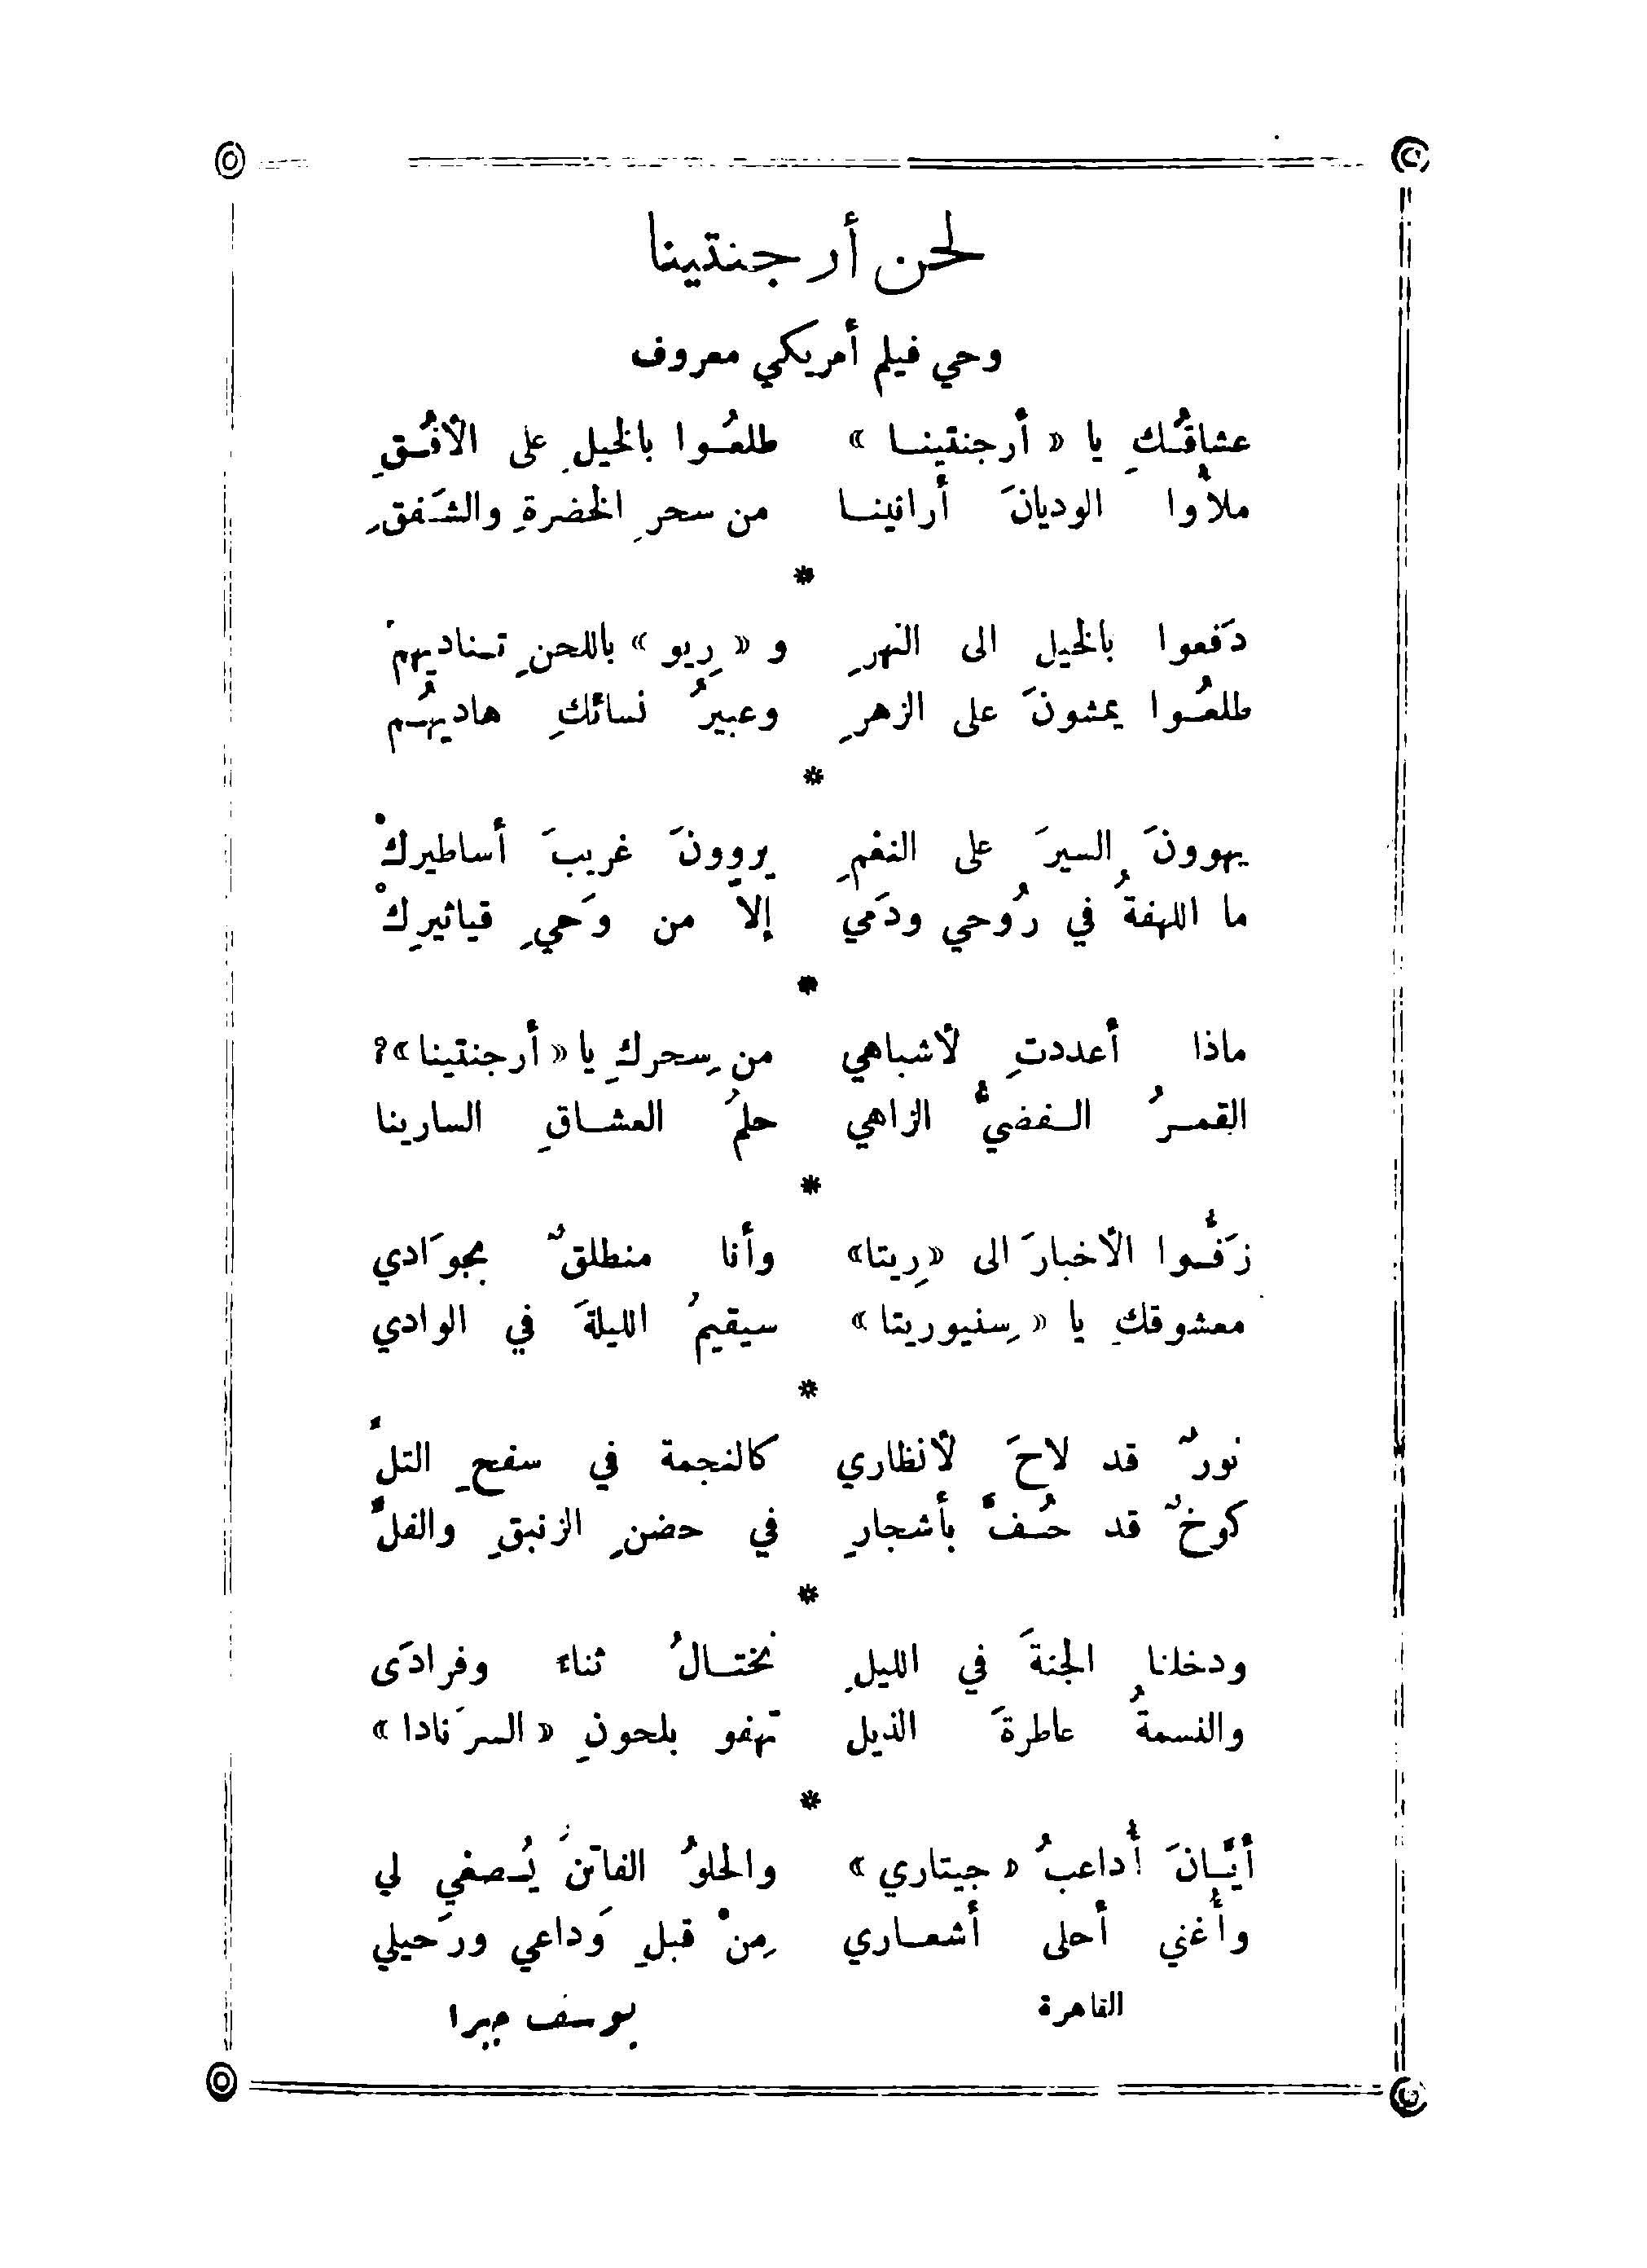 لحن أرجنتينا
وحي فيلم أمريكي معروف
عشاقُكِ يا « أرجنتينا » طلعُوا بالخيلِ على الأفُقِ
ملأوا الوديانَ أرانينا من سحرِ الخضرةِ والشَفقِ
*
دَفعوا بالخيل الى النهرِ و « رِيو » باللحنِ تناديهمْ
طلعُوا يمشونَ على الزهرِ وعبيرُ نسائكِ هاديهُم
*
يهوونَ السيرَ على النغمِ يروونَ غريبَ أساطيركْ
ما اللهفةُ في رُوحي ودَمي إلاّ من وَحيِ قياثيرِكْ
*
ماذا أعددتِ لأشباهي من سِحركِ يا « أرجنتينا »؟
القمرُ الفضيُّ الزاهي حلمُ العشاقِ السارينا
*
زَفُّوا الأخبارَ الى «رِيتا» وأنا منطلقٌ بجوَادي
معشوقكِ يا « سِنيوريتا » سيقيمُ الليلةَ في الوادي
*
نورٌ قد لاحَ لأنظاري كالنجمة في سفحِ التلّ
كوخٌ قد حُفَّ بأشجارِ في حضنِ الزنبقِ والفلّ
*
ودخلنا الجنةَ في الليلِ نختالُ ثناءَ وفرادَى
والنسمةُ عاطرةَ الذيل تهفو بلحونِ « السرَنادا »
*
أيَّانَ أُداعبُ « جيتاري » والحلوُ الفاتنُ يُصغي لي
وأُغني أحلى أشعاري مِنْ قبلِ وَداعي ورَحيلي
القاهرة يوسف جبرا